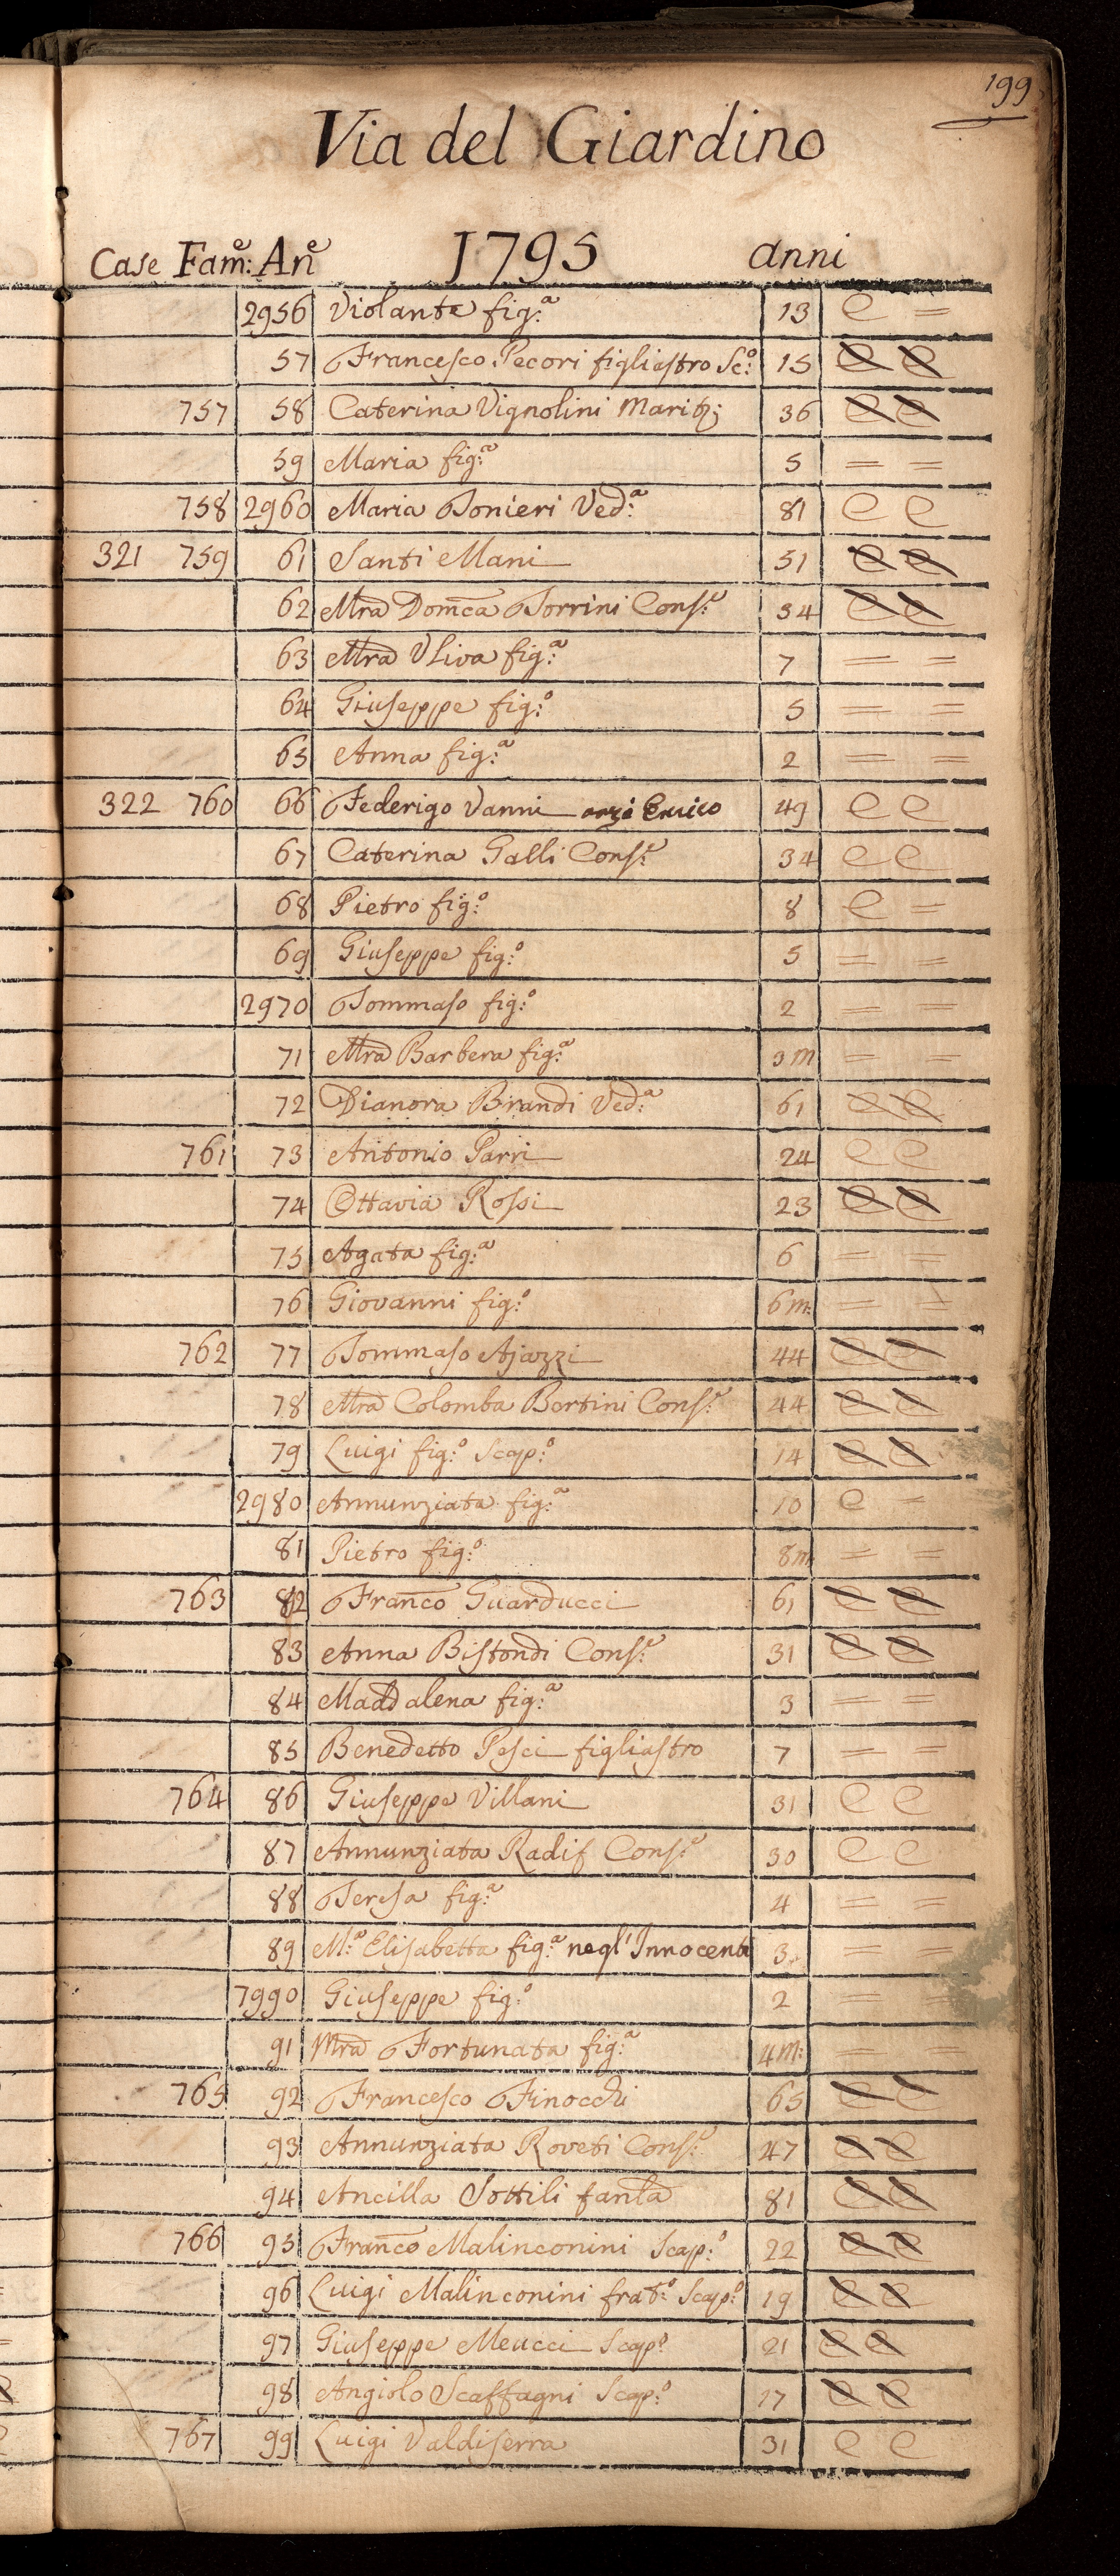 199
Via del Giardino
Case Fam:e An:e 1795 anni
2956 Violante fig:a 13 e =
57 Francesco Pecori figliastro Sc:o 15 e e
757 58 Caterina Vignolini Marit: 36 e e
59 Maria fig:a 5 = =
758 2960 Maria Tonieri Ved:a 81 e e
321 759 61 Santi Mani 51 e e
62 Mra Domca Torrini Cons:e 34 e e
63 Mra Uliva fig:a 7 = =
64 Giuseppe fig:o 5 = =
65 Anna fig:a 2 = =
322 760 66 Federigo Vanni anzi Enrico 49 e e
67 Caterina Galli Cons:e 34 e e
68 Pietro fig:o 8 e =
69 Giuseppe fig:o 5 = =
2970 Tommaso fig:o 2 = =
71 Mra Barbera fig:a 3m = =
72 Dianora Brandi Ved:a 61 e e
761 73 Antonio Parri 24 e e
74 Ottavia Rossi 23 e e
75 Agata fig:a 6 = =
76 Giovanni fig:o 6m: = =
762 77 Tommaso Ajazzi 44 e e
78 Mra Colomba Bertini Cons:e 44 e e
79 Luigi fig:o Scap:o 14 e e
2980 Annunziata fig:a 10 e =
81 Pietro fig:o 8m = =
763 82 Franco Guarducci 61 e e
83 Anna Bistondi Cons:e 31 e e
84 Maddalena fig:a 3 = =
85 Benedetto Pesci figliastro 7 = =
764 86 Giuseppe Villani 31 e e
87 Annunziata Radif Cons:e 30 e e
88 Teresa fig:a 4 = =
89 M:a Elisabetta fig:a negl'Innocenti 3 = =
7990 Giuseppe fig:o 2 = =
91 Mra Fortunata fig:a 4m: = =
765 92 Francesco Finocchi 65 e e
93 Annunziata Roveti Cons:e 47 e e
94 Ancilla Sottili fanta 81 e e
766 95 Franco Malinconini Scap:o 22 e e
96 Luigi Malinconini frat:o Scap:o 19 e e
97 Giuseppe Meucci Scap:o 21 e e
98 Angiolo Scaffagni Scap:o 17 e e
767 99 Luigi Valdiserra 31 e e